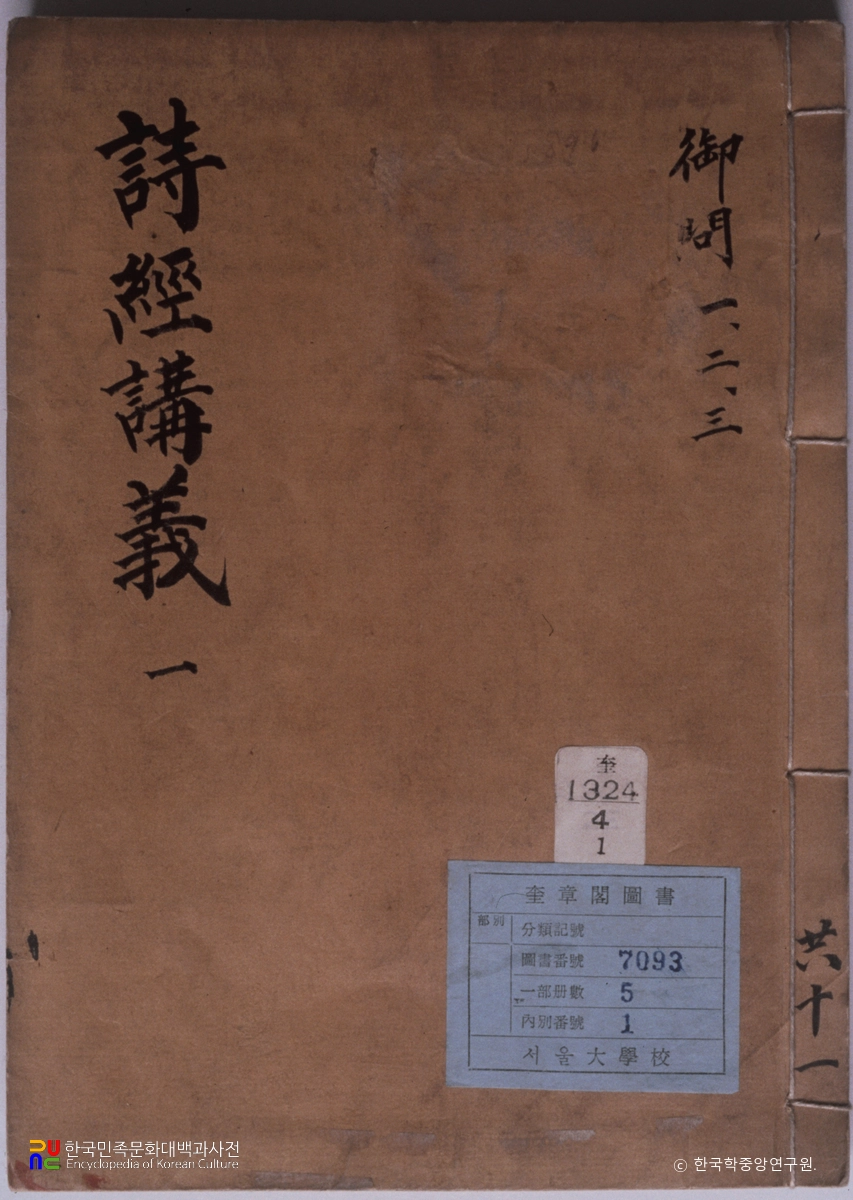 詩經講義 一
御問 一、二、三
共十一
奎
1324
4
1
奎章閣圖書
部別
分類記號
圖書番號 7093
一部册數 5
內別番號 1
서울大學校
한국민족문화대백과사전
Encyclopedia of Korean Culture
© 한국학중앙연구원.